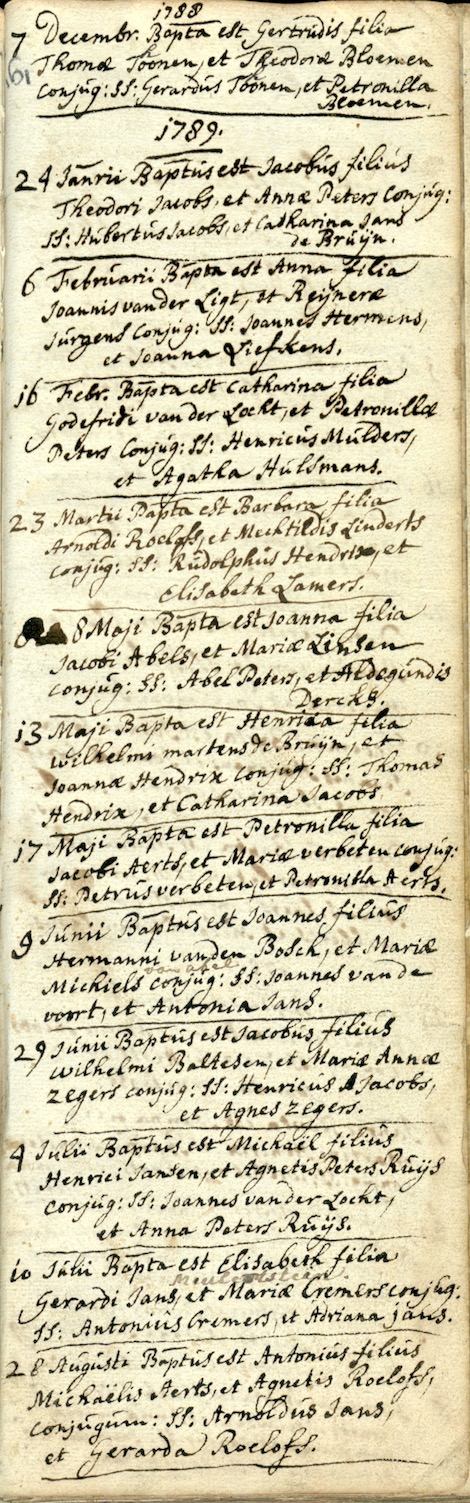 1788
7 Decembr. Bapta est Gertrudis filia
Thomæ Toonen, et Theodoræ Bloemen
conjug: SS: Gerardus Toonen, et Petronilla
Bloemen.
1789.
24 Janrii Baptus est Jacobus filius
Theodori Jacobs, et Annæ Peters conjug:
SS: Hubertus Jacobs, et Catharina Jans
de Bruijn.
6 Februarii Bapta est Anna filia
Joannis van der Ligt, et Reijneræ
Jurgens conjug: SS: Joannes Hermens,
et Joanna Liefkens.
16 Febr. Bapta est Catharina filia
Godefridi van der Locht, et Petronillæ
Peters conjug: SS: Henricus Mulders,
et Agatha Hulsmans.
23 Martii Bapta est Barbara filia
Arnoldi Roelofs, et Mechtildis Linderts
conjug: SS: Rudolphus Hendrix, et
Elisabeth Lamers.
8 Maji Bapta est Joanna filia
Jacobi Abels, et Mariæ Linsen
conjug: SS: Abel Peters, et Aldegundis
Dercks.
13 Maji Bapta est Henrica filia
Wilhelmi martens de Bruijn, et
Joannæ Hendrix conjug: SS: Thomas
Hendrix, et Catharina Jacobs
17 Maji Bapta est Petronilla filia
Jacobi Aerts, et Mariæ verbeten conjug:
SS: Petrus verbeten, et Petronilla Aerts.
9 Junii Baptus est Joannes filius
Hermanni van den Bosch, et Mariæ
Michiels conjug: SS: Joannes van de
voort, et Antonia Jans.
29 Junii Baptus est Jacobus filius
Wilhelmi Baltesen, et Mariæ Annæ
Zegers conjug: SS: Henricus Jacobs,
et Agnes Zegers.
4 Julii Baptus est Michaël filius
Henrici Jansen, et Agnetis Peters Ruijs
conjug: SS: Joannes van der Locht,
et Anna Peters Ruijs.
10 Julii Bapta est Elisabeth filia
Gerardi Jans, et Mariæ Cremers conjug:
SS: Antonius Cremers, et Adriana jans.
28 Augusti Baptus est Antonius filius
Michaëlis Aerts, et Agnetis Roelofs,
conjugum: SS: Arnoldus Jans,
et Gerarda Roelofs.